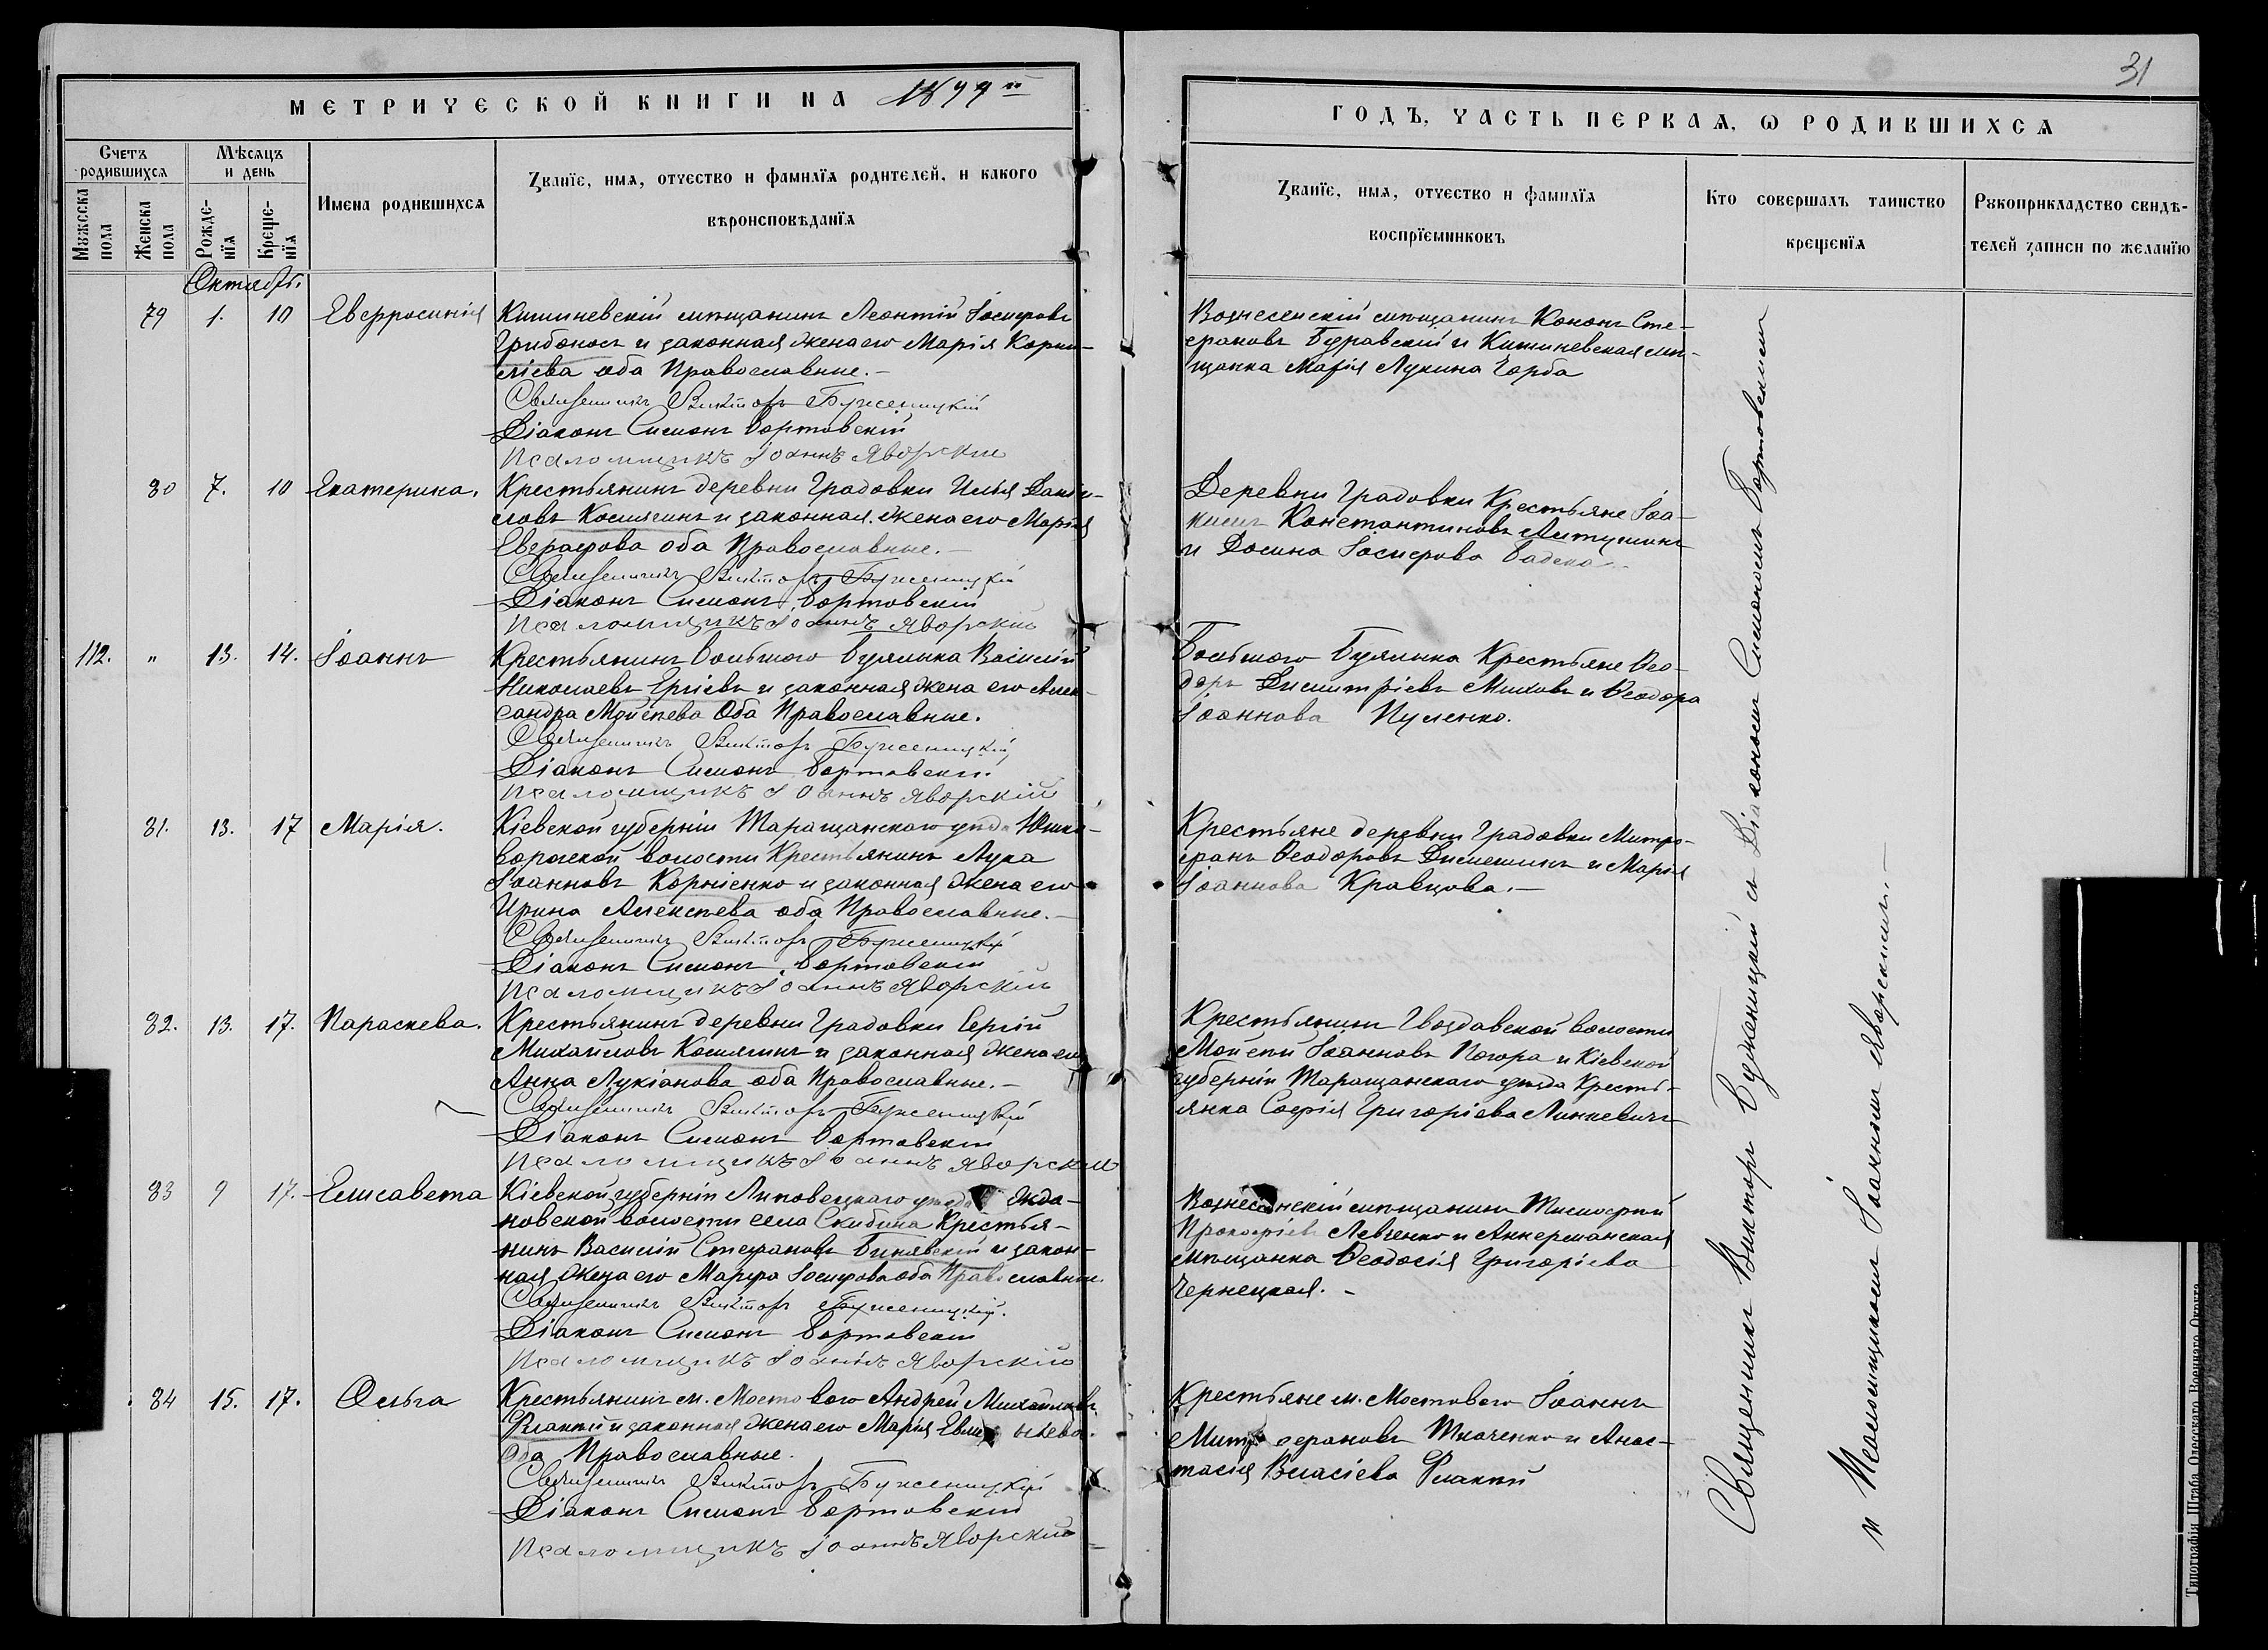 31
МЕТРИЧЕСКОЙ КНИГИ НА 1899й
ГОДЪ, ЧАСТЬ ПЕРВАЯ, Ѡ РОДИВШИХСЯ
Счетъ родившихся
Мѣсяцъ и день
Мужеска пола
Женска пола
Рождѐнія
Крещенія
Имена родившихся
Званїе, имя, отчество и фамилїя родителей, и какого
вѣроисповѣданїя
Званїе, имя, отчество и фамилїя
воспрїемниковъ
Кто совершалъ таинство
крещенїя
Рукоприкладство свидѣ-
телей записи по желанїю
Октябрь.
79 1. 10 Евфросинія
Кишиневскій мѣщанинъ Леонтій Іосифовъ
Грибоносъ и законная жена его Марія Корни-
лієва оба Православные.-
Священникъ Викторъ Буженицкій
Діаконъ Симонъ Бортовскій
Псаломщикъ Іоаннъ Яворскій
Вознесенскій мѣщанинъ Кононъ Сте-
фановъ Буравскій и Кишиневская мѣ-
щанка Марія Лукина Горба
80 7. 10 Екатерина.
Крестьянинъ деревни Градовки Илья Дани-
ловъ Косилгинъ и законная жена его Марія
Евграфова оба Православные.-
Священникъ Викторъ Буженицкій
Діаконъ Симонъ Бортовскій
Псаломщикъ Іоаннъ Яворскій
Деревни Градовки Крестьяне Іоа-
кимъ Константиновъ
и Домна Іосифова
112. " 13. 14. Іоаннъ
Крестьянинъ Большого Буялыка Василій
Николаевъ Ергіевъ и законная жена его Алек-
сандра Мойсѣева Оба Православные.
Священникъ Викторъ Буженицкій
Діаконъ Симонъ Бортовскій
Псаломщикъ Іоаннъ Яворскій
Большого Буялыка Крестьяне Ѳео-
доръ Димитріевъ Миховъ и Ѳеодора
Іоаннова Пуленко.
81. 13. 17 Марія.
Кіевской губерніи Таращанскаго уѣзда
волости Крестьянинъ Лука
Іоанновъ Корніенко и законная жена его
Ирина Алексѣева оба Православные.-
Священникъ Викторъ Буженицкій
Діаконъ Симонъ Бортовскій
Псаломщикъ Іоаннъ Яворскій
Крестьяне деревни Градовки Митро-
фанъ Ѳеодоровъ и Марія
Іоаннова Кравцова.-
82. 13. 17. Параскева.
Крестьянинъ деревни Градовки Сергій
Михайловъ Косилгинъ и законная жена его
Анна Лукіанова оба Православные.-
Священникъ Викторъ Буженицкій
Діаконъ Симонъ Бортовскій
Псаломщикъ Іоаннъ Яворскій
Крестьянинъ Гвоздавской волости
Мойсей Іоанновъ Погора и Кіевской
губерніи Таращанскаго уѣзда Кресть-
янка Софія Григоріева Линкевичъ
83 9 17. Елисавета
Кіевской губерніи Липовецкаго уѣзда Жда-
новской волости села Скибина Крестья-
нинъ Василій Стефановъ Бинявскій и закон-
ная жена его Марфа Іосифова оба Православные.
Священникъ Викторъ Буженицкій.
Діаконъ Симонъ Бортовскій
Псаломщикъ Іоаннъ Яворскій
Вознесенскій мѣщанинъ Тимофей
Прокофіевъ Левченко и Аккерманская
мѣщанка Ѳеодосія Григоріева
Чернецкая.-
84 15. 17. Ольга
Крестьянинъ м. Мостового Андрей Михайловъ
Флакей и законная жена его Марія
Оба Православные.
Священникъ Викторъ Буженицкій
Діаконъ Симонъ Бортовскій
Псаломщикъ Іоаннъ Яворскій
Крестьяне м. Мостового Іоаннъ
Митрофановъ Ткаченко и Анас-
тасія Власіева Флакей
Священникъ Викторъ Буженицкій съ Діакономъ Симономъ Бортовскимъ
и Псаломщикомъ Іоанномъ Яворскимъ.-
Типографія Штаба Одесскаго Военнаго Округа